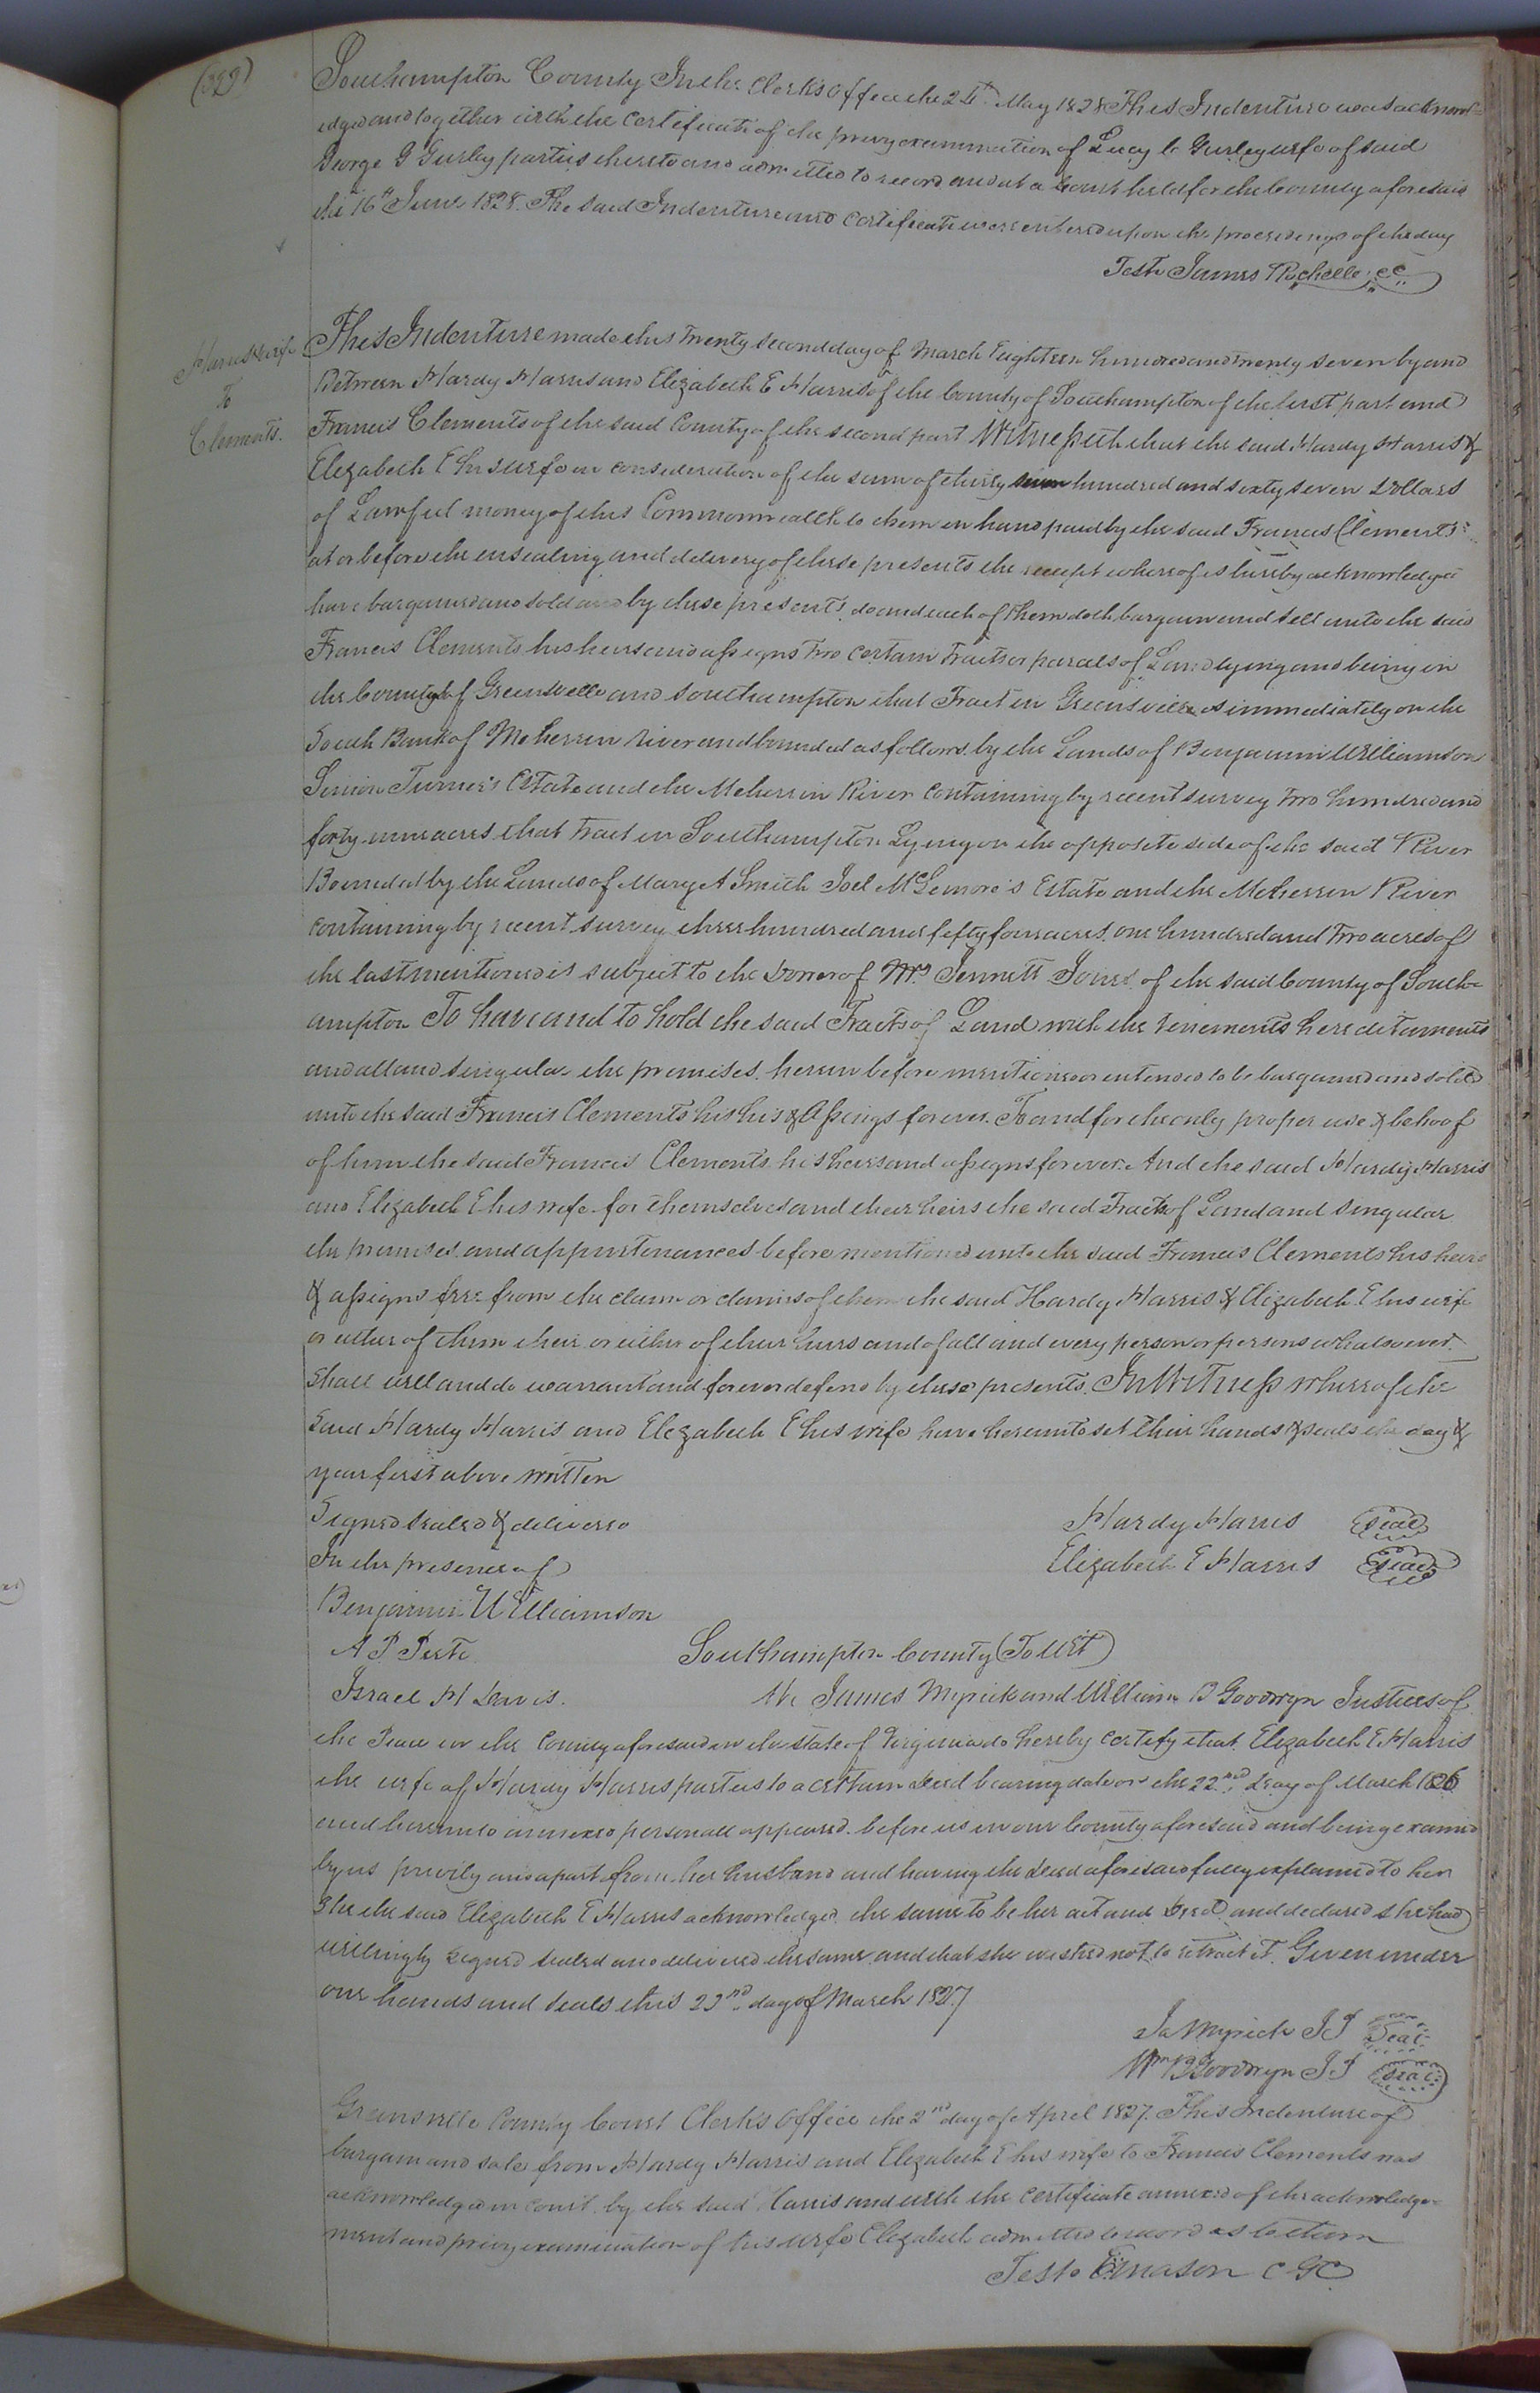 (399)
Southampton County In the Clerks Office the 24th May 1828 This Indenture was acknowl=
edged and together with the Certificate of the privy examination of Lucy C Gurley wife of said
George G Gurley parties thereto and admitted to record and at a Court held for the County aforesaid
the 16th June 1828. The said Indenture and Certificate were entered upon the proceedings of the day
Teste James Rochelle, CC
Harris & wife
To
Clements.
This Indenture made this twenty second day of March Eighteen hundred and twenty seven by and
Between Hardy Harris and Elizabeth E Harris of the County of Southampton of the first part and
Francis Clements of the said County of the second part Witnesseth that the said Hardy Harris &
Elizabeth E his wife in consideration of the sum of thirty hundred and sixty seven Dollars
of Lawful money of this Commonwealth to them in hand paid by the said Francis Clements
at or before the ensealing and delivery of these presents the receipt whereof is hereby acknowledged
have bargained and sold and by these presents do and each of them doth bargain and sell unto the said
Francis Clements his heirs and assigns two certain Tracts or parcels of Land lying and being in
the County of Greensville and Southampton that Tract in Greensville is immediately on the
South Bank of Meherrin River and bounded as follows by the Lands of Benjamin Williamson
Simion Turner's Estate and the Meherrin River Containing by recent survey two hundred and
forty nine acres that Tract in Southampton Lying on the opposite side of the said River
Bounded by the Lands of Mary A Smith Joel McLemore's Estate and the Meherrin River
containing by recent survey three hundred and fifty four acres. one hundred and two acres of
the last mentioned is subject to the Dower of Mrs Jennett Jones of the said County of South=
ampton To have and to hold the said Tracts of Land with the tenements hereditaments
and all and singular the premises herein before mentioned or intended to be bargained and sold
unto the said Francis Clements his his & Assings forever. To and for the only proper use & behoof
of him the said Francis Clements his heirs and assigns forever. And the said Hardy Harris
and Elizabeth E his wife for themselves and their heirs the said Tracts of Land and singular
the premises and appurtenances before mentioned unto the said Francis Clements his heirs
& assigns free from the claim or claims of them the said Hardy Harris & Elizabeth E his wife
or either of them their or either of their heirs and of all and every person or persons whatsoever
Shall will and do warrant and forever defend by these presents. In Witness whereof the
said Hardy Harris and Elizabeth E his wife have hereunto set their hands & seals the day &
year first above written
Signed sealed & delivered
In the presence of
Hardy Harris (seal)
Elizabeth E Harris (seal)
Benjamin Williamson
A P Peete
Israel H Davis.
Southampton County (To Wit)
We James Myrick and William B Goodwyn Justices of
the Peace in the County aforesaid in the state of Virginia do hereby certify that Elizabeth E Harris
the wife of Hardy Harris parties to a certain Deed bearing date on the 22nd Day of March 1826
and hereunto annexed personall appeared before us in our County aforesaid and being examined
by us privily and apart from her husband and having the Deed aforesaid fully explained to her
She the said Elizabeth E Harris acknowledged the same to be her act and Deed and declared she had
willingly signed sealed and delivered the same and that she wished not to retract it Given under
our hands and seals this 22nd day of March 1827
Ja Myrick JP Seal
Wm B Goodwyn JP (seal)
Greensville County Court Clerks Office the 2nd day of April 1827. This Indenture of
bargain and sale from Hardy Harris and Elizabeth E his wife to Francis Clements was
acknowledged in court by the said Harris and with the certificate annexed of the acknowledge=
ment and privy examination of his wife Elizabeth admitted to record as to them
Teste E Mason C GC